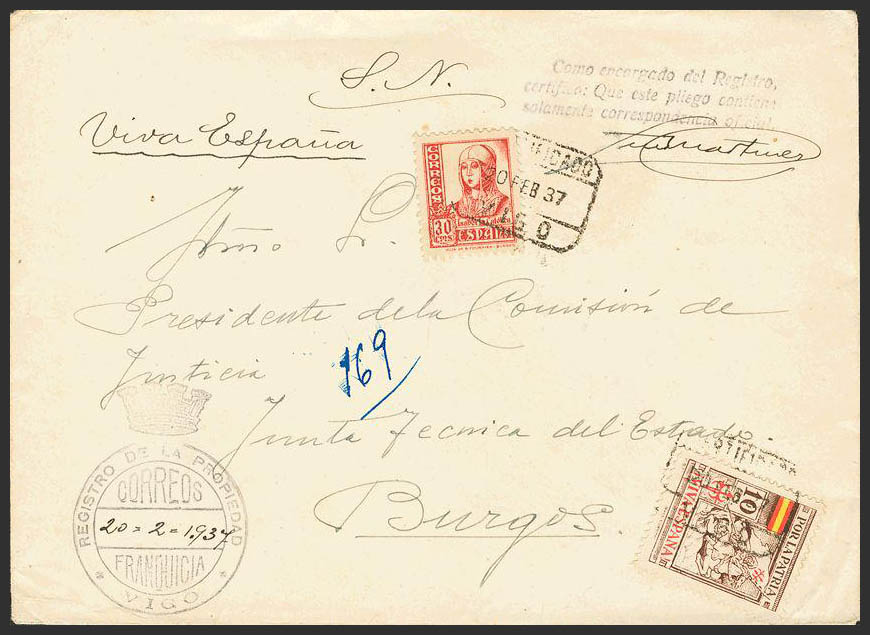 S. N.
Viva España
Como encargado del Registro,
certifico: Que este pliego contiene
solamente correspondencia oficial.
CORREOS
30 CTS
ESPAÑA
CERTIFICADO
20 FEB 37
VIGO
Iltmo S.
Presidente de la Comisión de
Justicia
169
Junta Tecnica del Estado.
Burgos
REGISTRO DE LA PROPIEDAD
CORREOS
20=2=1.937
FRANQUICIA
VIGO
10
POR LA PATRIA
VIVA ESPAÑA